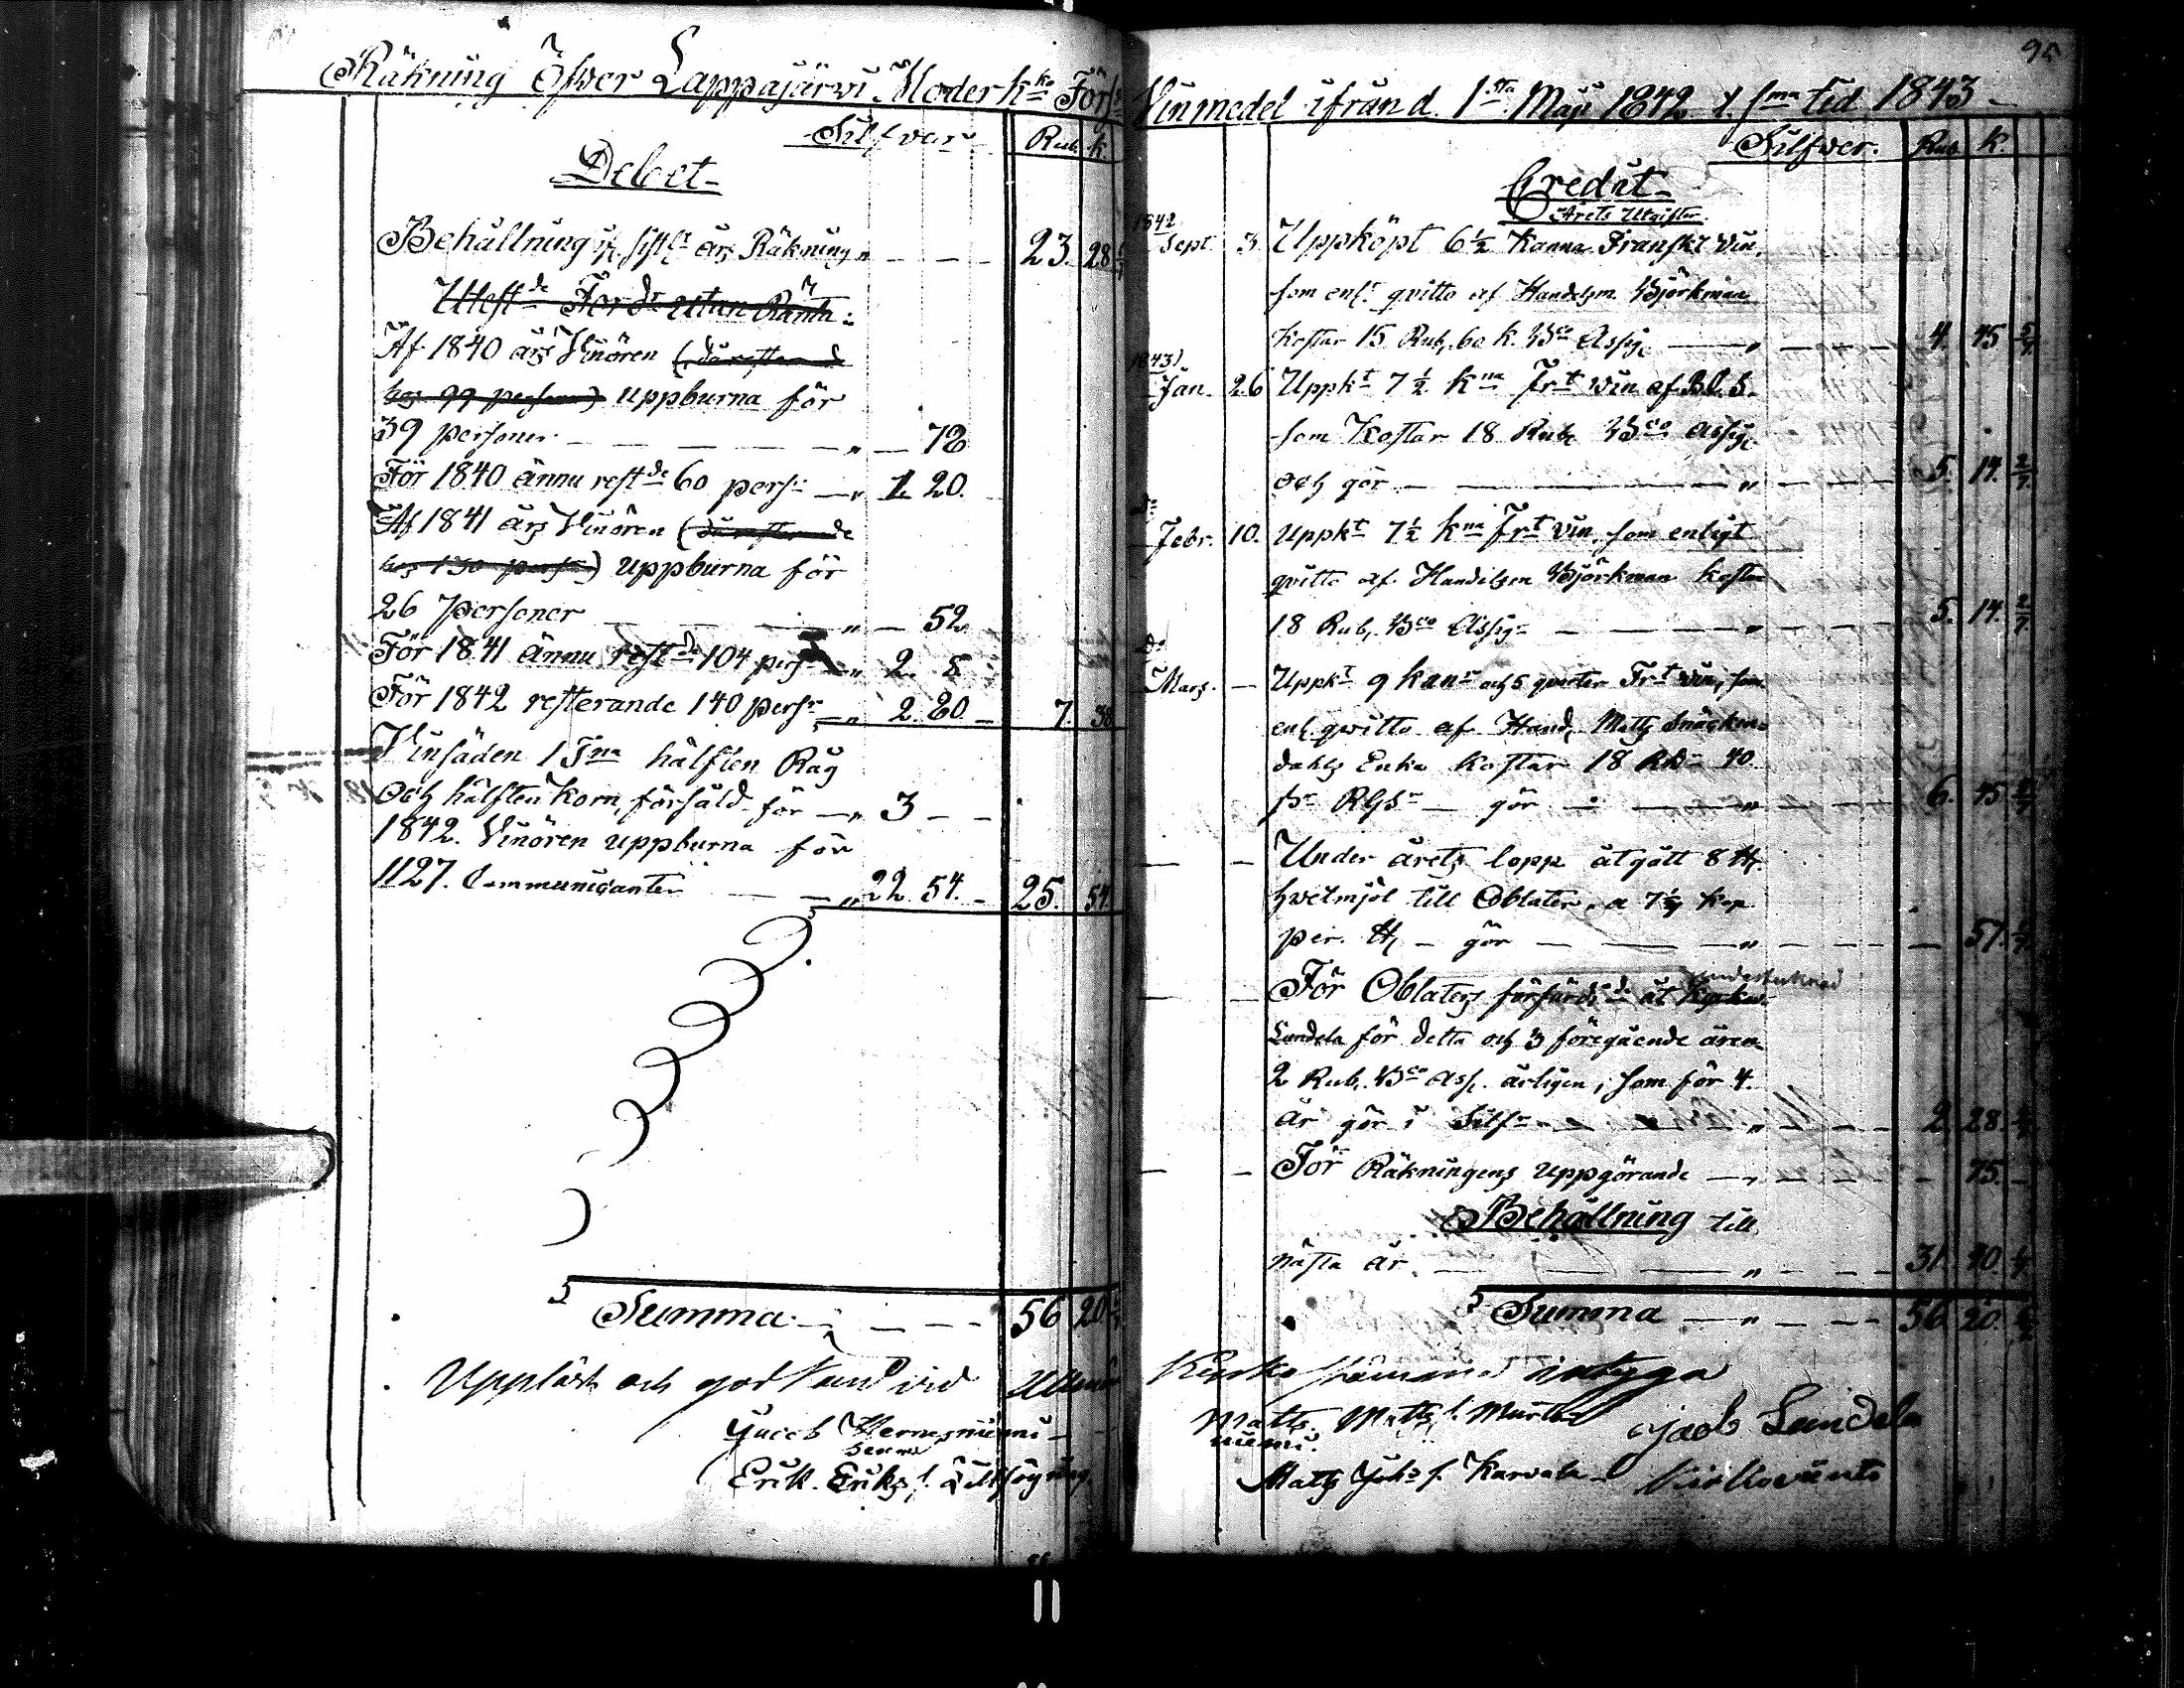 Räkning Öfwer Lappajärwi Moder k:ko Förs:s
Silfver Rub. k.
Debet
Behållning if. sistl:t års Räkning „ 23. 28
Utest:de Ford:r utan Ränta:
Af 1840 års Vinören (däraf rest:de
hos 99 personer) uppburna för
39 personer „ 78
För 1840 ännu rest:de 60 pers:r „ 1. 20.
Af 1841 års Vinören
hos 130 pers:r) uppburna för
26 Personer „ 52
För 1841 ännu rest:de 104 pers:r „ 2. 8
För 1842 resterande 140 pers:r „ 2. 80. 7. 38
Vinsäden 1 T:na hälften Råg
och hälften Korn, försåld för „ 3
1842. Vinören uppburna för
1127. Communicanter „ 22. 54. 25. 54.
Summa 56 20
Uppläst och godkänd vid
Jacob Hernesniemi
Erik Eriks s.
95
Vinmedel ifrån d. 1:sta Maji 1842 t. s:ma tid 1843
Silfwer. Rub. k.
Credit
Årets Utgifter.
1842
Sept. 3. Uppköpt 6 1/2 Kanna Franskt Vin,
som enl:t qvitto af Handelsm. Björkman
kostar 15 Rub. 60 k. B:co Assig. „ 4. 45 5/7
1843
Jan. 26 Uppk:t 7 1/2 k:na Fr:t Vin af
som Kostar 18 Rub. B:co Assig.
och gör „ 5. 14. 2/7.
D:o
Febr. 10. Uppk:t 7 1/2 k:na Fr:t Vin, som enligt
qvitto af Handelsm Björkman kostar
18 Rub. B:co Assig. „ 5. 14. 2/7.
D:o
Mars. Uppk:t 9 kan:r och 5 qvarter Fr:t Vin, som
enl. qvitto af Hand. Matts Snäcken-
dahls Enka kostar 18 40
gör „ 6. 45
Under årets lopp åtgått 8 ℔
hvetmjöl till Oblater, a 7 1/7 kop.
per. ℔ gör „ 57. 1/7.
undertecknad
För Oblaters förfärdig:de åt
Lundela för detta och 3 föregående åren
2 Rub. B:co ass. årligen, som för 4.
år gör i Silf:r „ 2. 28.
För Räkningens uppgörande „ 75.
Behållning till
nästa år „ 31. 40.
Summa „ 56 20.
intyga
Matts Matts s.
niemi.
Jacob Lundela
Matts Joh:s s. Karvala